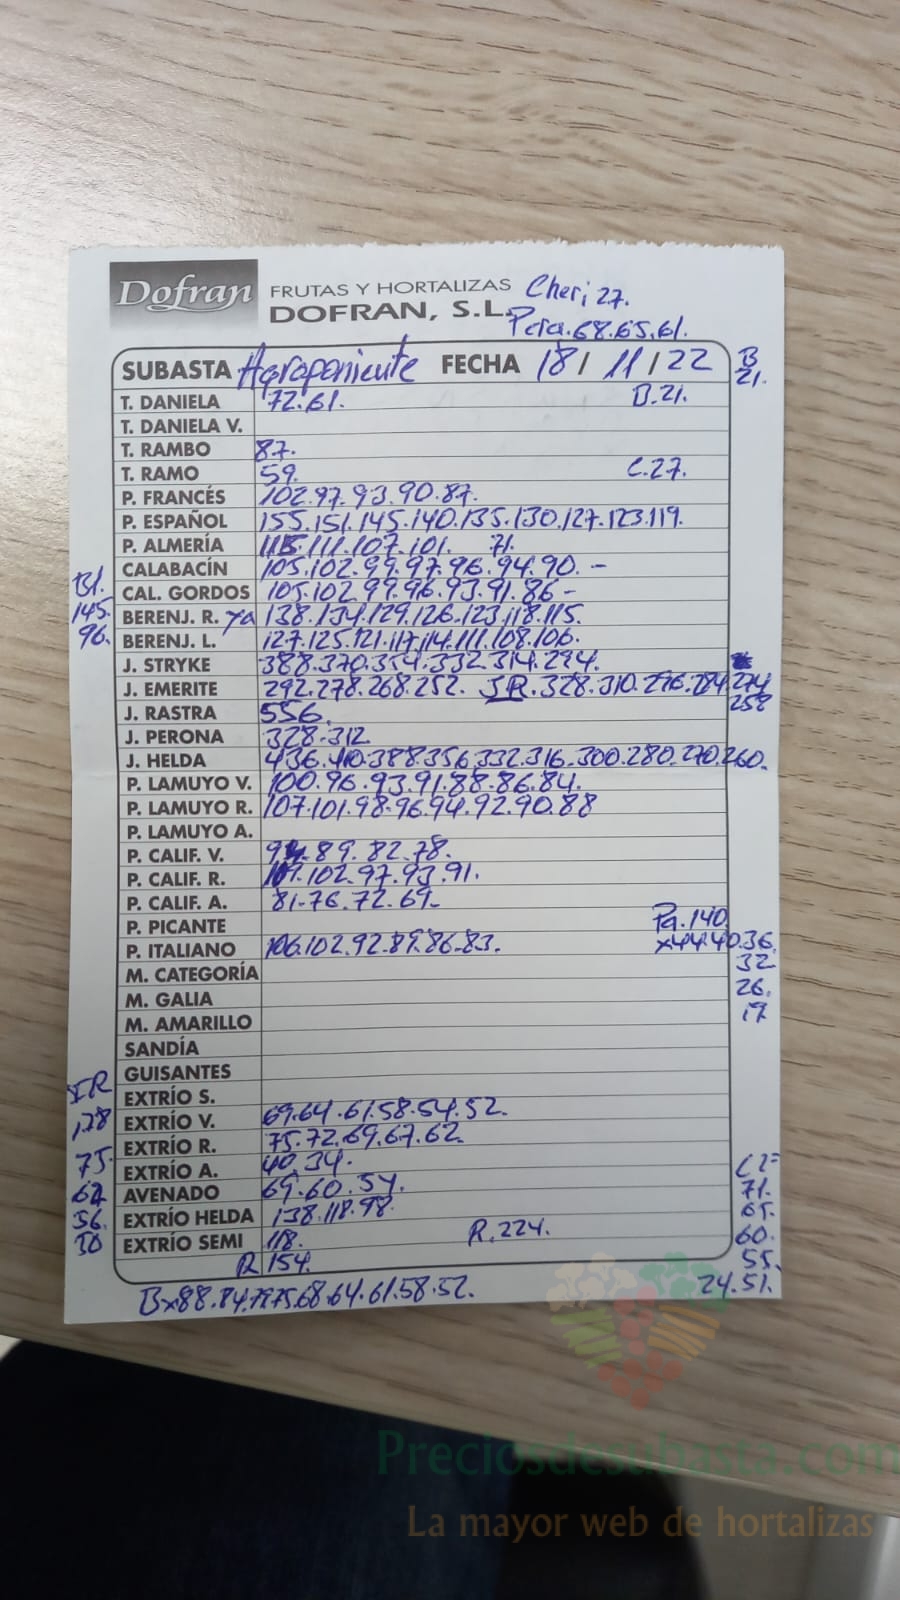 Dofran FRUTAS Y HORTALIZAS Cheri 27.
DOFRAN, S.L. Pera.68.65.61.
SUBASTA Agroponiente FECHA 18/ 11 / 22 B
21.
T. DANIELA 72.61. B.21.
T. DANIELA V.
T. RAMBO 87.
T. RAMO 59. C.27.
P. FRANCÉS 102.97.93.90.87.
P. ESPAÑOL 155.151.145.140.135.130.127.123.119.
P. ALMERÍA 115.111.107.101. 71.
CALABACÍN 105.102.99.97.96.94.90.-
Bl. CAL. GORDOS 105.102.99.96.93.91.86-
145. BERENJ. R. ya 138.134.129.126.123.118.115.
96. BERENJ. L. 127.125.121.117.114.111.108.106.
J. STRYKE 388.370.354.332.314.294.
J. EMERITE 292.278.268.252. SR.328.310.296.284.274
258
J. RASTRA 556.
J. PERONA 328.312
J. HELDA 436.410.388.356.332.316.300.280.270.260.
P. LAMUYO V. 100.96.93.91.88.86.84.
P. LAMUYO R. 107.101.98.96.94.92.90.88
P. LAMUYO A.
P. CALIF. V. 89.82.78.
P. CALIF. R. 102.97.93.91.
P. CALIF. A. 81-76.72.69-
P. PICANTE Pa.140
P. ITALIANO 106.102.92.89.86.83. x44.40.36.
32
M. CATEGORÍA
M. GALIA 26.
M. AMARILLO 19
SANDÍA
GUISANTES
IR EXTRÍO S.
178 EXTRÍO V. 69.64.61.58.54.52.
EXTRÍO R. 75.72.69.67.62.
75. EXTRÍO A. 40.34.
62 AVENADO 69.60.54. 71.
56. EXTRÍO HELDA 138.118.98. 65.
50 EXTRÍO SEMI 118. R.224. 60.
R 154. 55.
Bx88.84.79.75.68.64.61.58.52. 24.51.
Preciosdesubasta.com
La mayor web de hortalizas